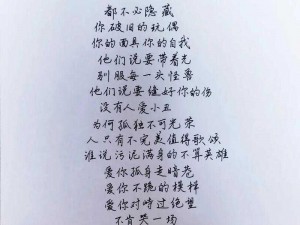 都不必隐藏
你破旧的玩偶
你的面具你的自我
他们说要带着光
别服每一头怪兽
他们说要缝好你的伤
没有人爱小丑
为何孤独不可光荣
人只有不完美值得歌颂
谁说污泥满身的不算英雄
爱你孤身走暗巷
爱你不跪的模样
爱你对峙过绝望
不肯哭一场